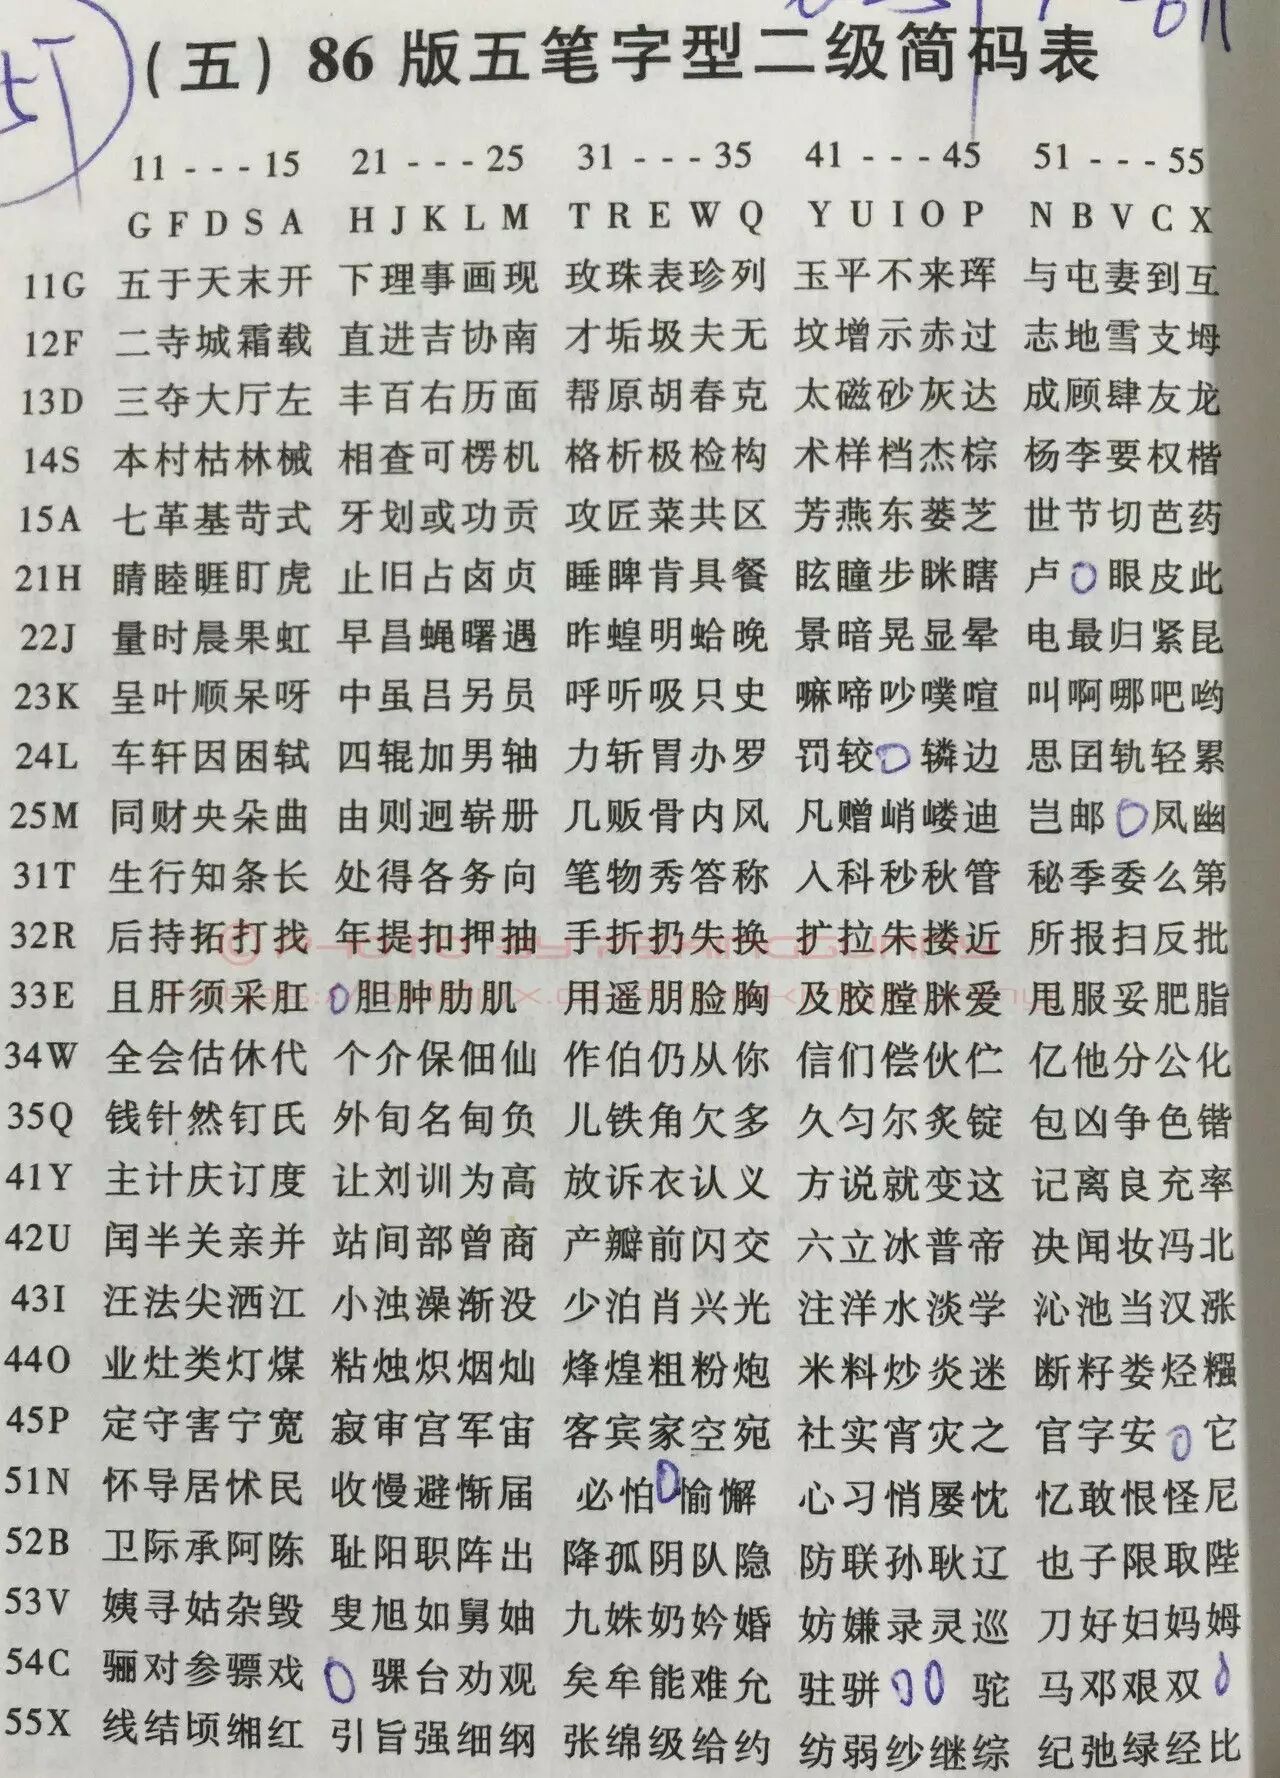 (五) 86 版五笔字型二级简码表
11 - - - 15 21 - - - 25 31 - - - 35 41 - - - 45 51 - - - 55
G F D S A H J K L M T R E W Q Y U I O P N B V C X
11G 五于天末开 下理事画现 玫珠表珍列 玉平不来珲 与屯妻到互
12F 二寺城霜载 直进吉协南 才垢圾夫无 坟增示赤过 志地雪支坶
13D 三夺大厅左 丰百右历面 帮原胡春克 太磁砂灰达 成顾肆友龙
14S 本村枯林械 相查可楞机 格析极检构 术样档杰棕 杨李要权楷
15A 七革基苛式 牙划或功贡 攻匠菜共区 芳燕东蒌芝 世节切芭药
21H 睛睦睚盯虎 止旧占卤贞 睡睥肯具餐 眩瞳步眯瞎 卢0眼皮此
22J 量时晨果虹 早昌蝇曙遇 昨蝗明蛤晚 景暗晃显晕 电最归紧昆
23K 呈叶顺呆呀 中虽吕另员 呼听吸只史 嘛啼吵噗喧 叫啊哪吧哟
24L 车轩因困轼 四辊加男轴 力斩胃办罗 罚较0辚边 思囝轨轻累
25M 同财央朵曲 由则迥崭册 几贩骨内风 凡赠峭嵝迪 岂邮0凤幽
31T 生行知条长 处得各务向 笔物秀答称 入科秒秋管 秘季委么第
32R 后持拓打找 年提扣押抽 手折扔失换 扩拉朱搂近 所报扫反批
33E 且肝须采肛 0胆肿肋肌 用遥朋脸胸 及胶膛脒爱 甩服妥肥脂
34W 全会估休代 个介保佃仙 作伯仍从你 信们偿伙伫 亿他分公化
35Q 钱针然钉氏 外旬名甸负 儿铁角欠多 久匀尔炙锭 包凶争色锴
41Y 主计庆订度 让刘训为高 放诉衣认义 方说就变这 记离良充率
42U 闰半关亲并 站间部曾商 产瓣前闪交 六立冰普帝 决闻妆冯北
43I 汪法尖洒江 小浊澡渐没 少泊肖兴光 注洋水淡学 沁池当汉涨
44O 业灶类灯煤 粘烛炽烟灿 烽煌粗粉炮 米料炒炎迷 断籽娄烃糨
45P 定守害宁宽 寂审宫军宙 客宾家空宛 社实宵灾之 官字安0它
51N 怀导居怵民 收慢避惭届 必怕0愉懈 心习悄屡忱 忆敢恨怪尼
52B 卫际承阿陈 耻阳职阵出 降孤阴队隐 防联孙耿辽 也子限取陛
53V 姨寻姑杂毁 叟旭如舅妯 九姝奶妗婚 妨嫌录灵巡 刀好妇妈姆
54C 骊对参骠戏 0骒台劝观 矣牟能难允 驻骈00驼 马邓艰双0
55X 线结顷缃红 引旨强细纲 张绵级给约 纺弱纱继综 纪弛绿经比